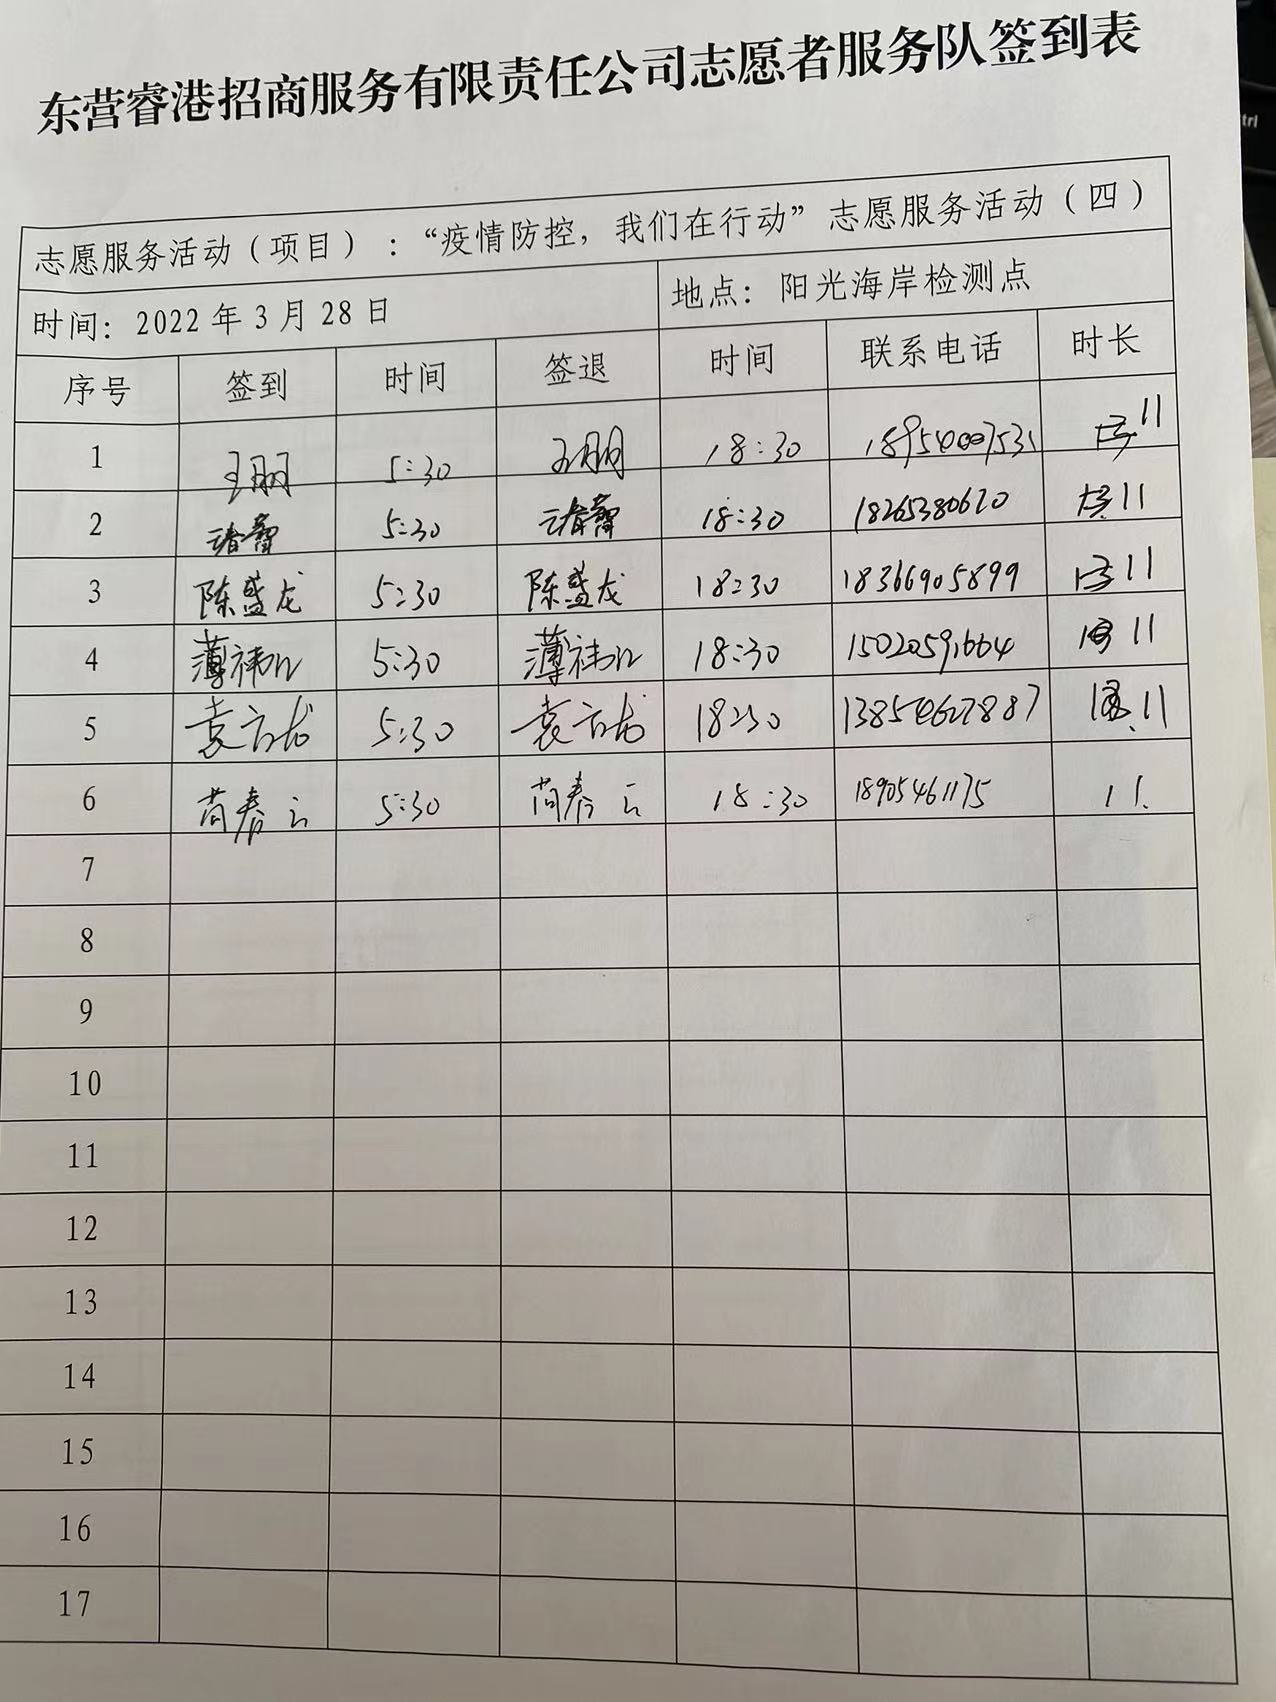 东营睿港招商服务有限责任公司志愿者服务队签到表
志愿服务活动（项目）：“疫情防控，我们在行动”志愿服务活动（四）
时间：2022年3月28日 地点：阳光海岸检测点
序号 签到 时间 签退 时间 联系电话 时长
1 王朋 5:30 王朋 18:30 11
2 5:30 18:30 18265380620 11
3 陈盛龙 5:30 陈盛龙 18:30 18366905899 11
4 薄祎 5:30 薄祎 18:30 15020591664 11
5 袁方龙 5:30 袁方龙 18:30 13854627887 11
6 苘春云 5:30 苘春云 18:30 18905461175 11
7
8
9
10
11
12
13
14
15
16
17